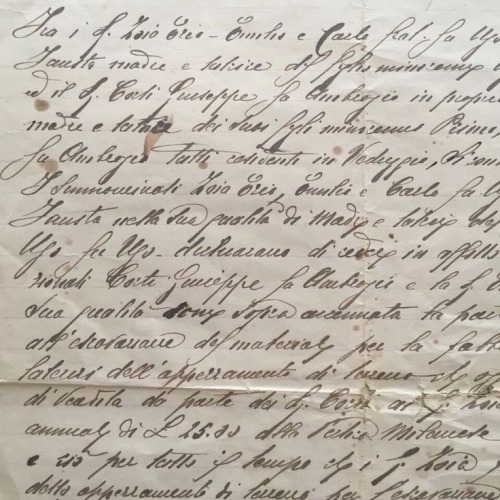 Fra i S. Zoia Ezio - Emilio e Carlo frat. fu Ugo
Fausta madre e tutrice del figlio minorenne U
ed il S. Corti Giuseppe fu Ambrogio in propri
madre e tutrice dei suoi figli minorenni Primo
fu Ambrogio tutti residenti in Vedeggio, si
I summominati Zoia Ezio, Emilio e Carlo fu U
Fausta nella sua qualità di Madre e tutrice del
Ugo fu Ugo - dichiarano di cedere in affitto
Corti Giuseppe fu Ambrogio e la S.
sua qualità come sopra accennata la par
all'escavazione del materiale per la fab
laterizi dell'appezzamento di terreno che
di vendita da parte dei S. Corti ai S. Zoia
annuale di L 25.00 alla Milanese
e ciò per tutto il tempo che i S. Zoia
detto appezzamento di terreno per l'escavazione